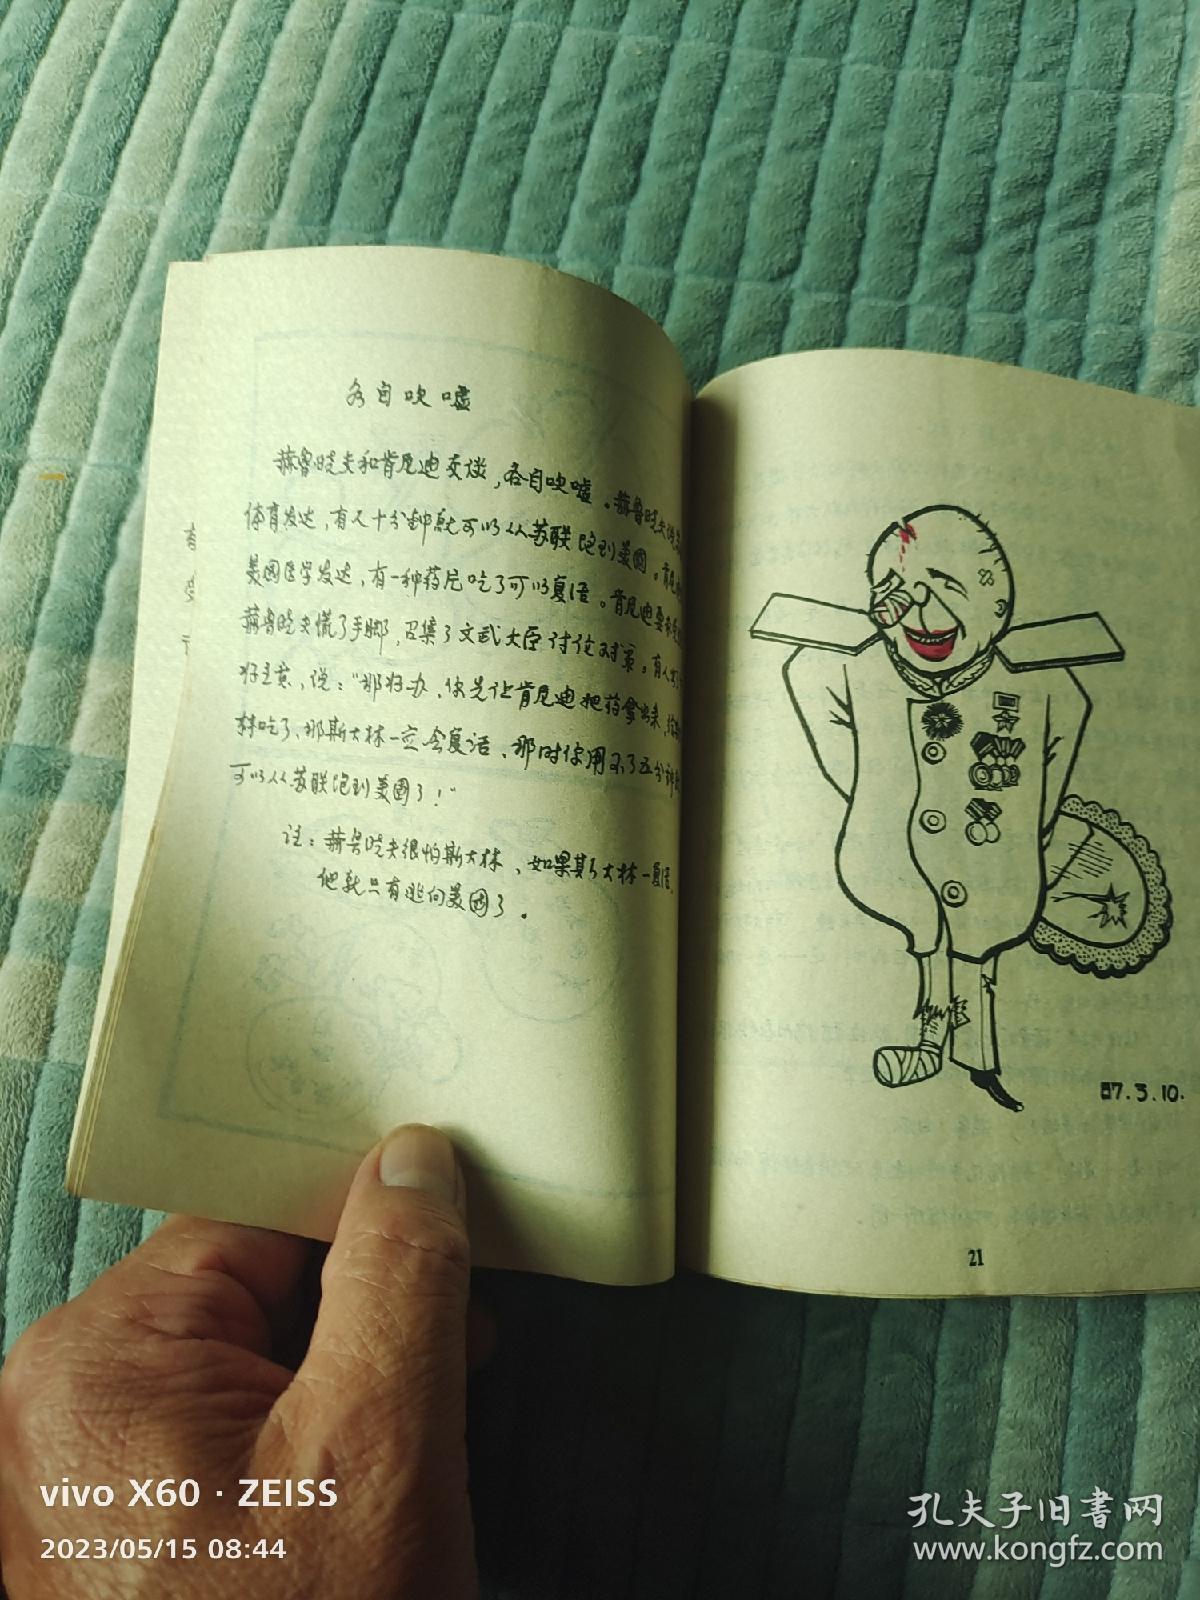 各自吹嘘
赫鲁晓夫和肯尼迪交谈，各自吹嘘。赫鲁晓夫说
体育发达，有人十分钟就可以从苏联跑到美国。肯尼迪
美国医学发达，有一种药片吃了可以复活。肯尼迪要
赫鲁晓夫慌了手脚，召集了文武大臣讨论对策。有人
好主意，说：“那好办，你先让肯尼迪把药拿出来，给
林吃了，那斯大林一定会复活，那时你用不了五分钟
可以从苏联跑到美国了！”
注：赫鲁晓夫很怕斯大林，如果斯大林一复活，
他就只有逃向美国了。
87.3.10.
21
vivo X60 · ZEISS
2023/05/15 08:44
孔夫子旧書网
www.kongfz.com